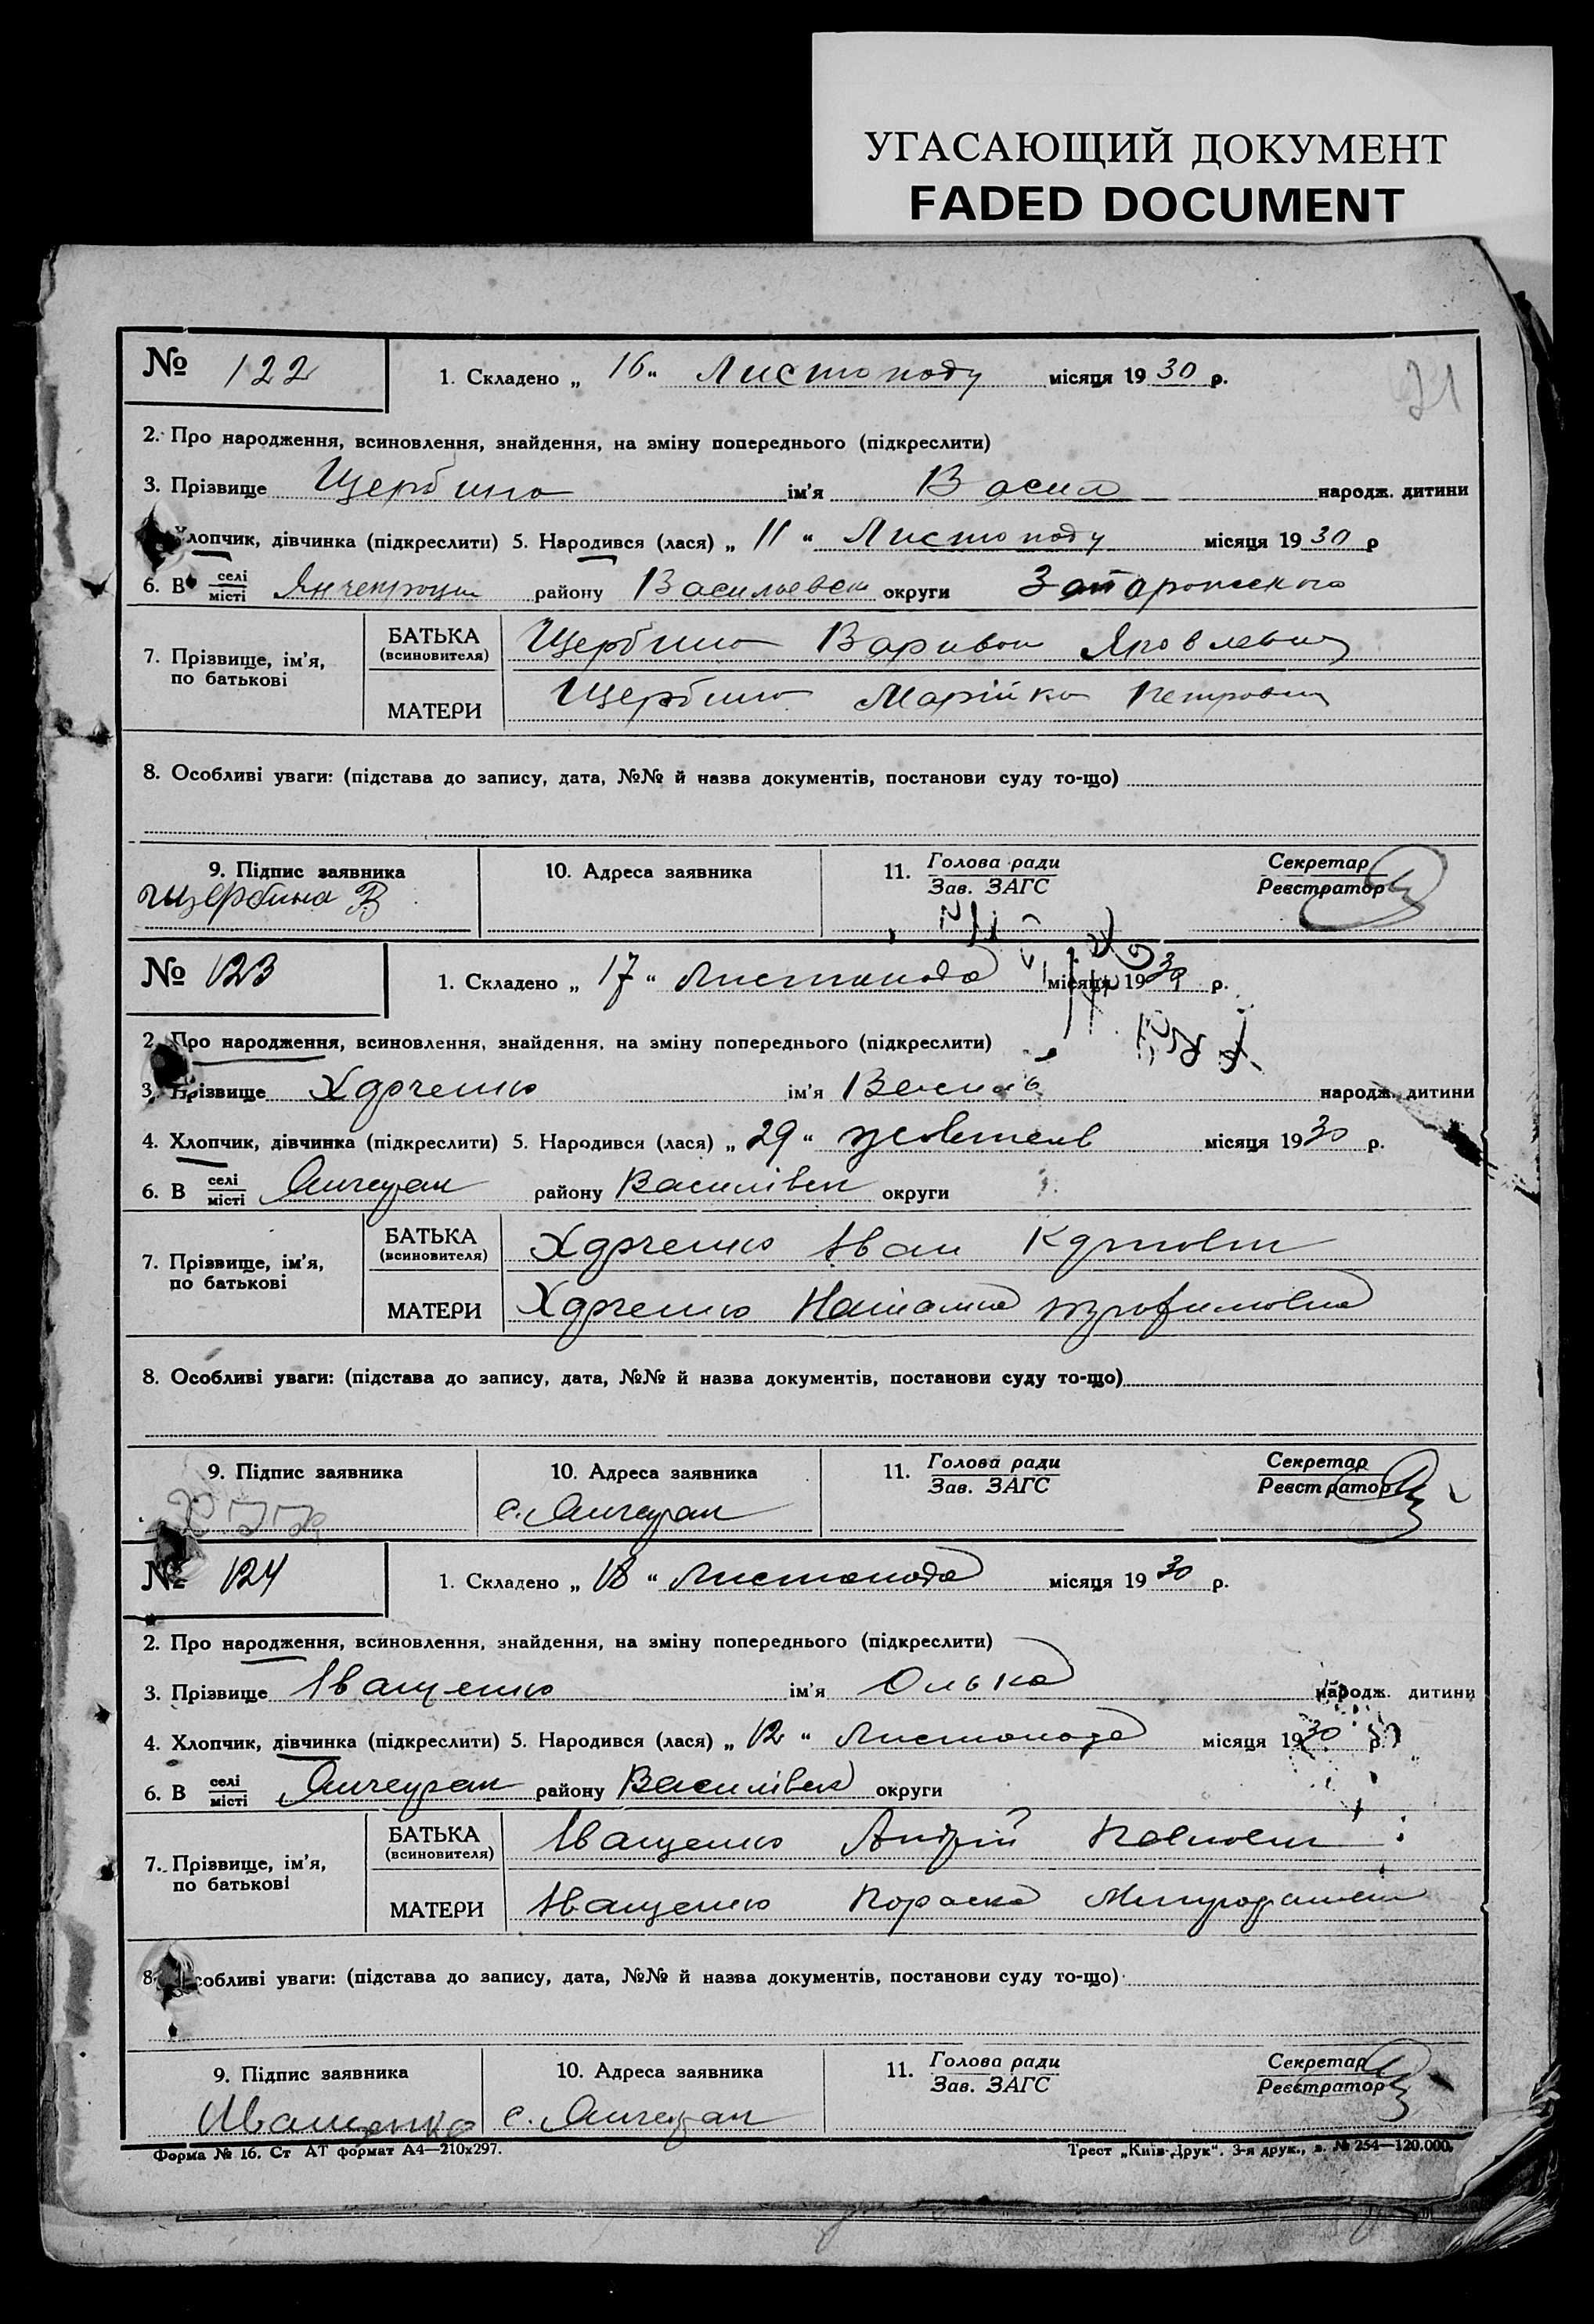 УГАСАЮЩИЙ ДОКУМЕНТ
FADED DOCUMENT
21
№ 122 1. Складено „ 16 " Листопаду місяця 1930 р.
2. Про народження, всиновлення, знайдення, на зміну попереднього (підкреслити)
3. Прізвище Щербина ім'я Васил народж. дитини
Хлопчик, дівчинка (підкреслити) 5. Народився (лася) „ 11 " Листопаду місяця 1930 р
6. В селі місті Янчекроци району Васильевск округи Запорожского
7. Прізвище, ім'я, по батькові
БАТЬКА (всиновителя) Щербина Варивон Яковлевич
МАТЕРИ Щербина Марійка Петровна
8. Особливі уваги: (підстава до запису, дата, №№ й назва документів, постанови суду то-що)
9. Підпис заявника 10. Адреса заявника 11. Голова ради Зав. ЗАГС Секретар Реєстратор
Щербина В
№ 123 1. Складено „ 17 " Листопада місяця 1930 р.
2. Про народження, всиновлення, знайдення, на зміну попереднього (підкреслити)
3. Прізвище ім'я Василь народж. дитини
4. Хлопчик, дівчинка (підкреслити) 5. Народився (лася) „ 29 " жовтень місяця 1930 р.
6. В селі місті району Василівск округи
7. Прізвище, ім'я, по батькові
БАТЬКА (всиновителя) Іван
МАТЕРИ Наталка Трофимовна
8. Особливі уваги: (підстава до запису, дата, №№ й назва документів, постанови суду то-що)
9. Підпис заявника 10. Адреса заявника 11. Голова ради Зав. ЗАГС Секретар Реєстратор
с.
№ 124 1. Складено „ 18 " Листопада місяця 1930 р.
2. Про народження, всиновлення, знайдення, на зміну попереднього (підкреслити)
3. Прізвище Іващенко ім'я Олька народж. дитини
4. Хлопчик, дівчинка (підкреслити) 5. Народився (лася) „ 12 " Листопада місяця 1930 р.
6. В селі місті району Василівск округи
7. Прізвище, ім'я, по батькові
БАТЬКА (всиновителя) Іващенко Андрій Павлович
МАТЕРИ Іващенко Параска
8. Особливі уваги: (підстава до запису, дата, №№ й назва документів, постанови суду то-що)
9. Підпис заявника 10. Адреса заявника 11. Голова ради Зав. ЗАГС Секретар Реєстратор
Иващенко с.
Форма № 16. Ст АТ формат А4—210х297. Трест „Київ-Друк". 3-я друк., з. № 254—120.000.